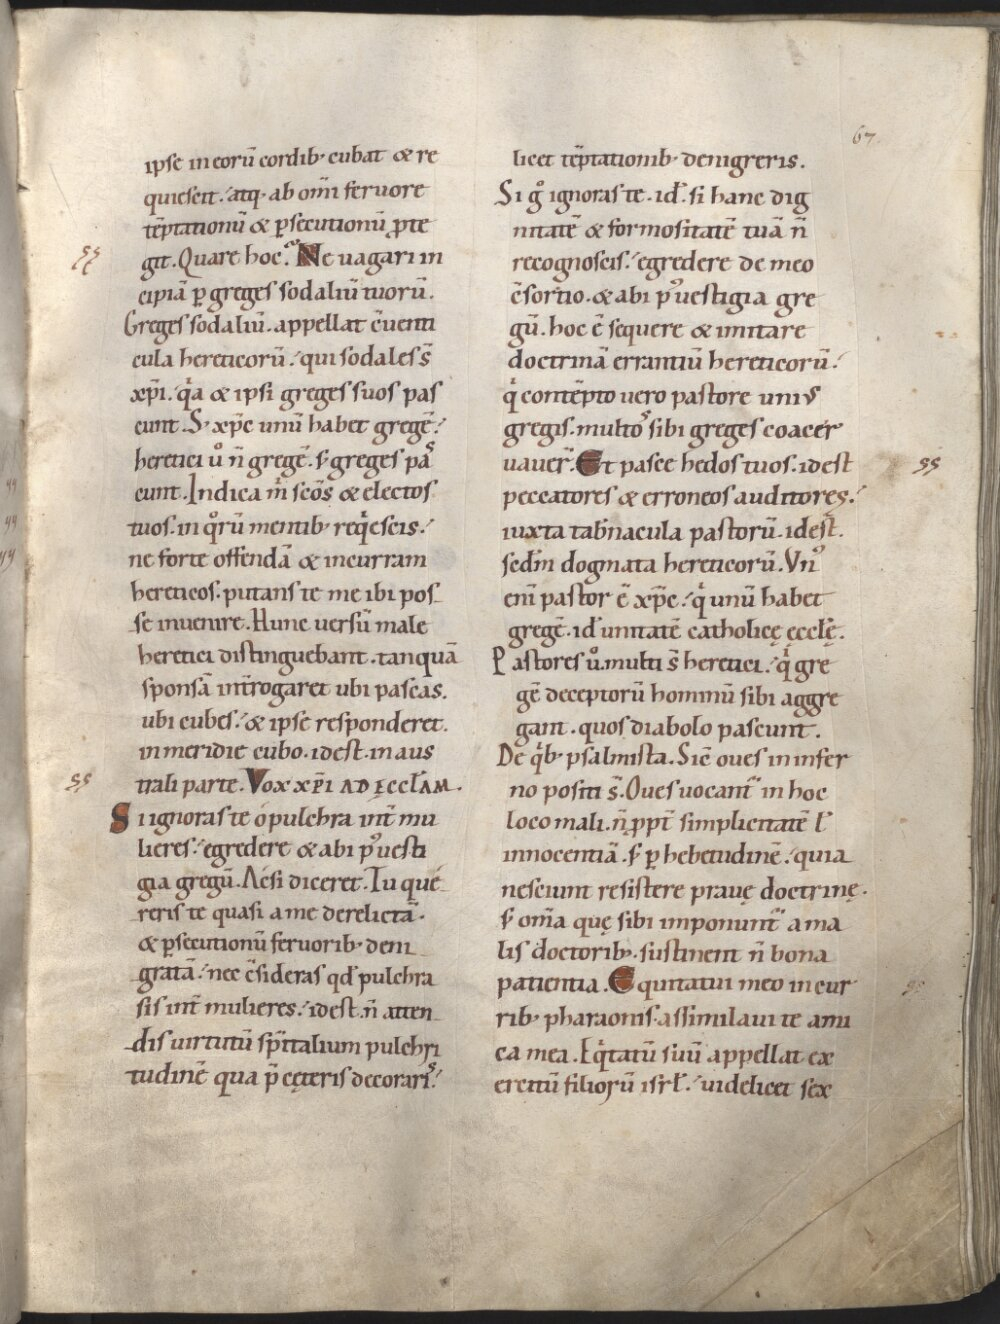 67
ipse in eorū cordib; cubat & re
quiescit. atq; ab om̄i fervore
tēptationū & p̱secutionū ꝓte
git. Quare hoc? Ne vagari in
cipiā p̱ greges sodaliū tuorū.
Greges sodaliū. appellat c̄venti
cula hereticorū. qui sodales s̄
xp̄i. q̇a & ipsi greges suos pas
cunt. S; xp̄c unū habet gregē.
heretici ů n̄ gregē. ſ; greges pa
cunt. Indica m̊ sc̄os & electos
tuos. in q̊rū mentib; req̇escis.
ne forte offendā & incurram
hereticos. putans te me ibi pos
se invenire. Hunc versū male
heretici distinguebant. tanquā
sponsā int̄rogaret ubi pascas.
ubi cubes. & ipse responderet.
in meridie cubo. idest. in aus
trali parte. Vox xp̄i ad ęccl̄am.
Si ignoras te o pulchra int̄ mu
lieres. egredere & abi p᷒ vesti
gia gregū. Acsi diceret. Tu que
reris te quasi a me derelictā.
& p̱secutionū fervorib; deni
gratā. nec c̄sideras qd̄ pulchra
sis int̄ mulieres. idest. n̄ atten
dis virtutū sp̄italium pulchri
tudinē qua p̄ cęteris decoraris.
licet tēptationib; denigreris.
Si g̊ ignoras te. id̄. si hanc dig
nitatē & formositatē tuā n̄
recognoscis. egredere de meo
c̄sortio. & abi p᷒ vestigia gre
gū. hoc ē sequere & imitare
doctrinā errantiū hereticorū.
q̇ contēpto vero pastore unius
gregis. multos sibi greges coacer
vaver̄. Et pasce hedos tuos. idest
peccatores & erroneos auditores.
iuxta tab̄nacula pastorū. idest.
sed̄m dogmata hereticorū. Vn᷒
eni̅ pastor ē xp̄c. q̇ unū habet
gregē. id̄ unitatē catholicę ęccl̄ę.
Pastores ů. multi s̄ heretici. q̇ gre
gē deceptorū hominū sibi aggre
gant. quos diabolo pascunt.
De q̇b; psalmista. Sic̄ oves in infer
no positi s̄. Oves vocant᷑ in hoc
loco mali. n̄ ꝓpt̄ simplicitatē ł
innocentiā. ſ; p̱ hebetudinē. quia
nesciunt resistere pravę doctrinę.
ſ; om̄a quę sibi imponunt᷑ a ma
lis doctorib;. sustinent n̄ bona
patientia. Equitatui meo in cur
rib; pharaonis. assimilavi te ami
ca mea. Eq̇tatū suū appellat ex
ercitū filiorū isrł. videlicet sex